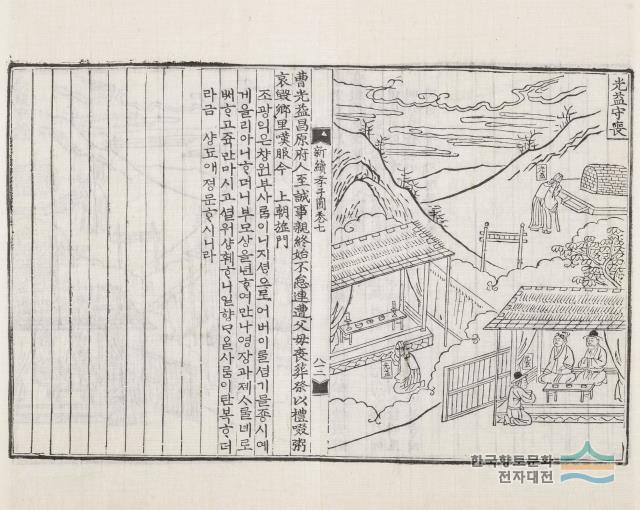 光益守喪
光益
光益
光益
新續孝子圖卷七
八二
曹光益昌原府人至誠事親終始不怠連遭父母喪葬祭以禮啜粥
哀毀鄕里嘆服今 上朝旌門
조광익은챵원부사ᄅᆞᆷ이니지셩으로어버이ᄅᆞᆯ셤기믈죵시예
게을리아니ᄒᆞ더니부모상을년ᄒᆞ여만나영장과제ᄉᆞᄅᆞᆯ녜로
ᄡᅥᄒᆞ고쥭만마시고셜워샹훼ᄒᆞ니일향모ᄃᆞᆫ사ᄅᆞᆷ이탄복ᄒᆞ더
라금 샹됴애졍문ᄒᆞ시니라
한국향토문화
전자대전